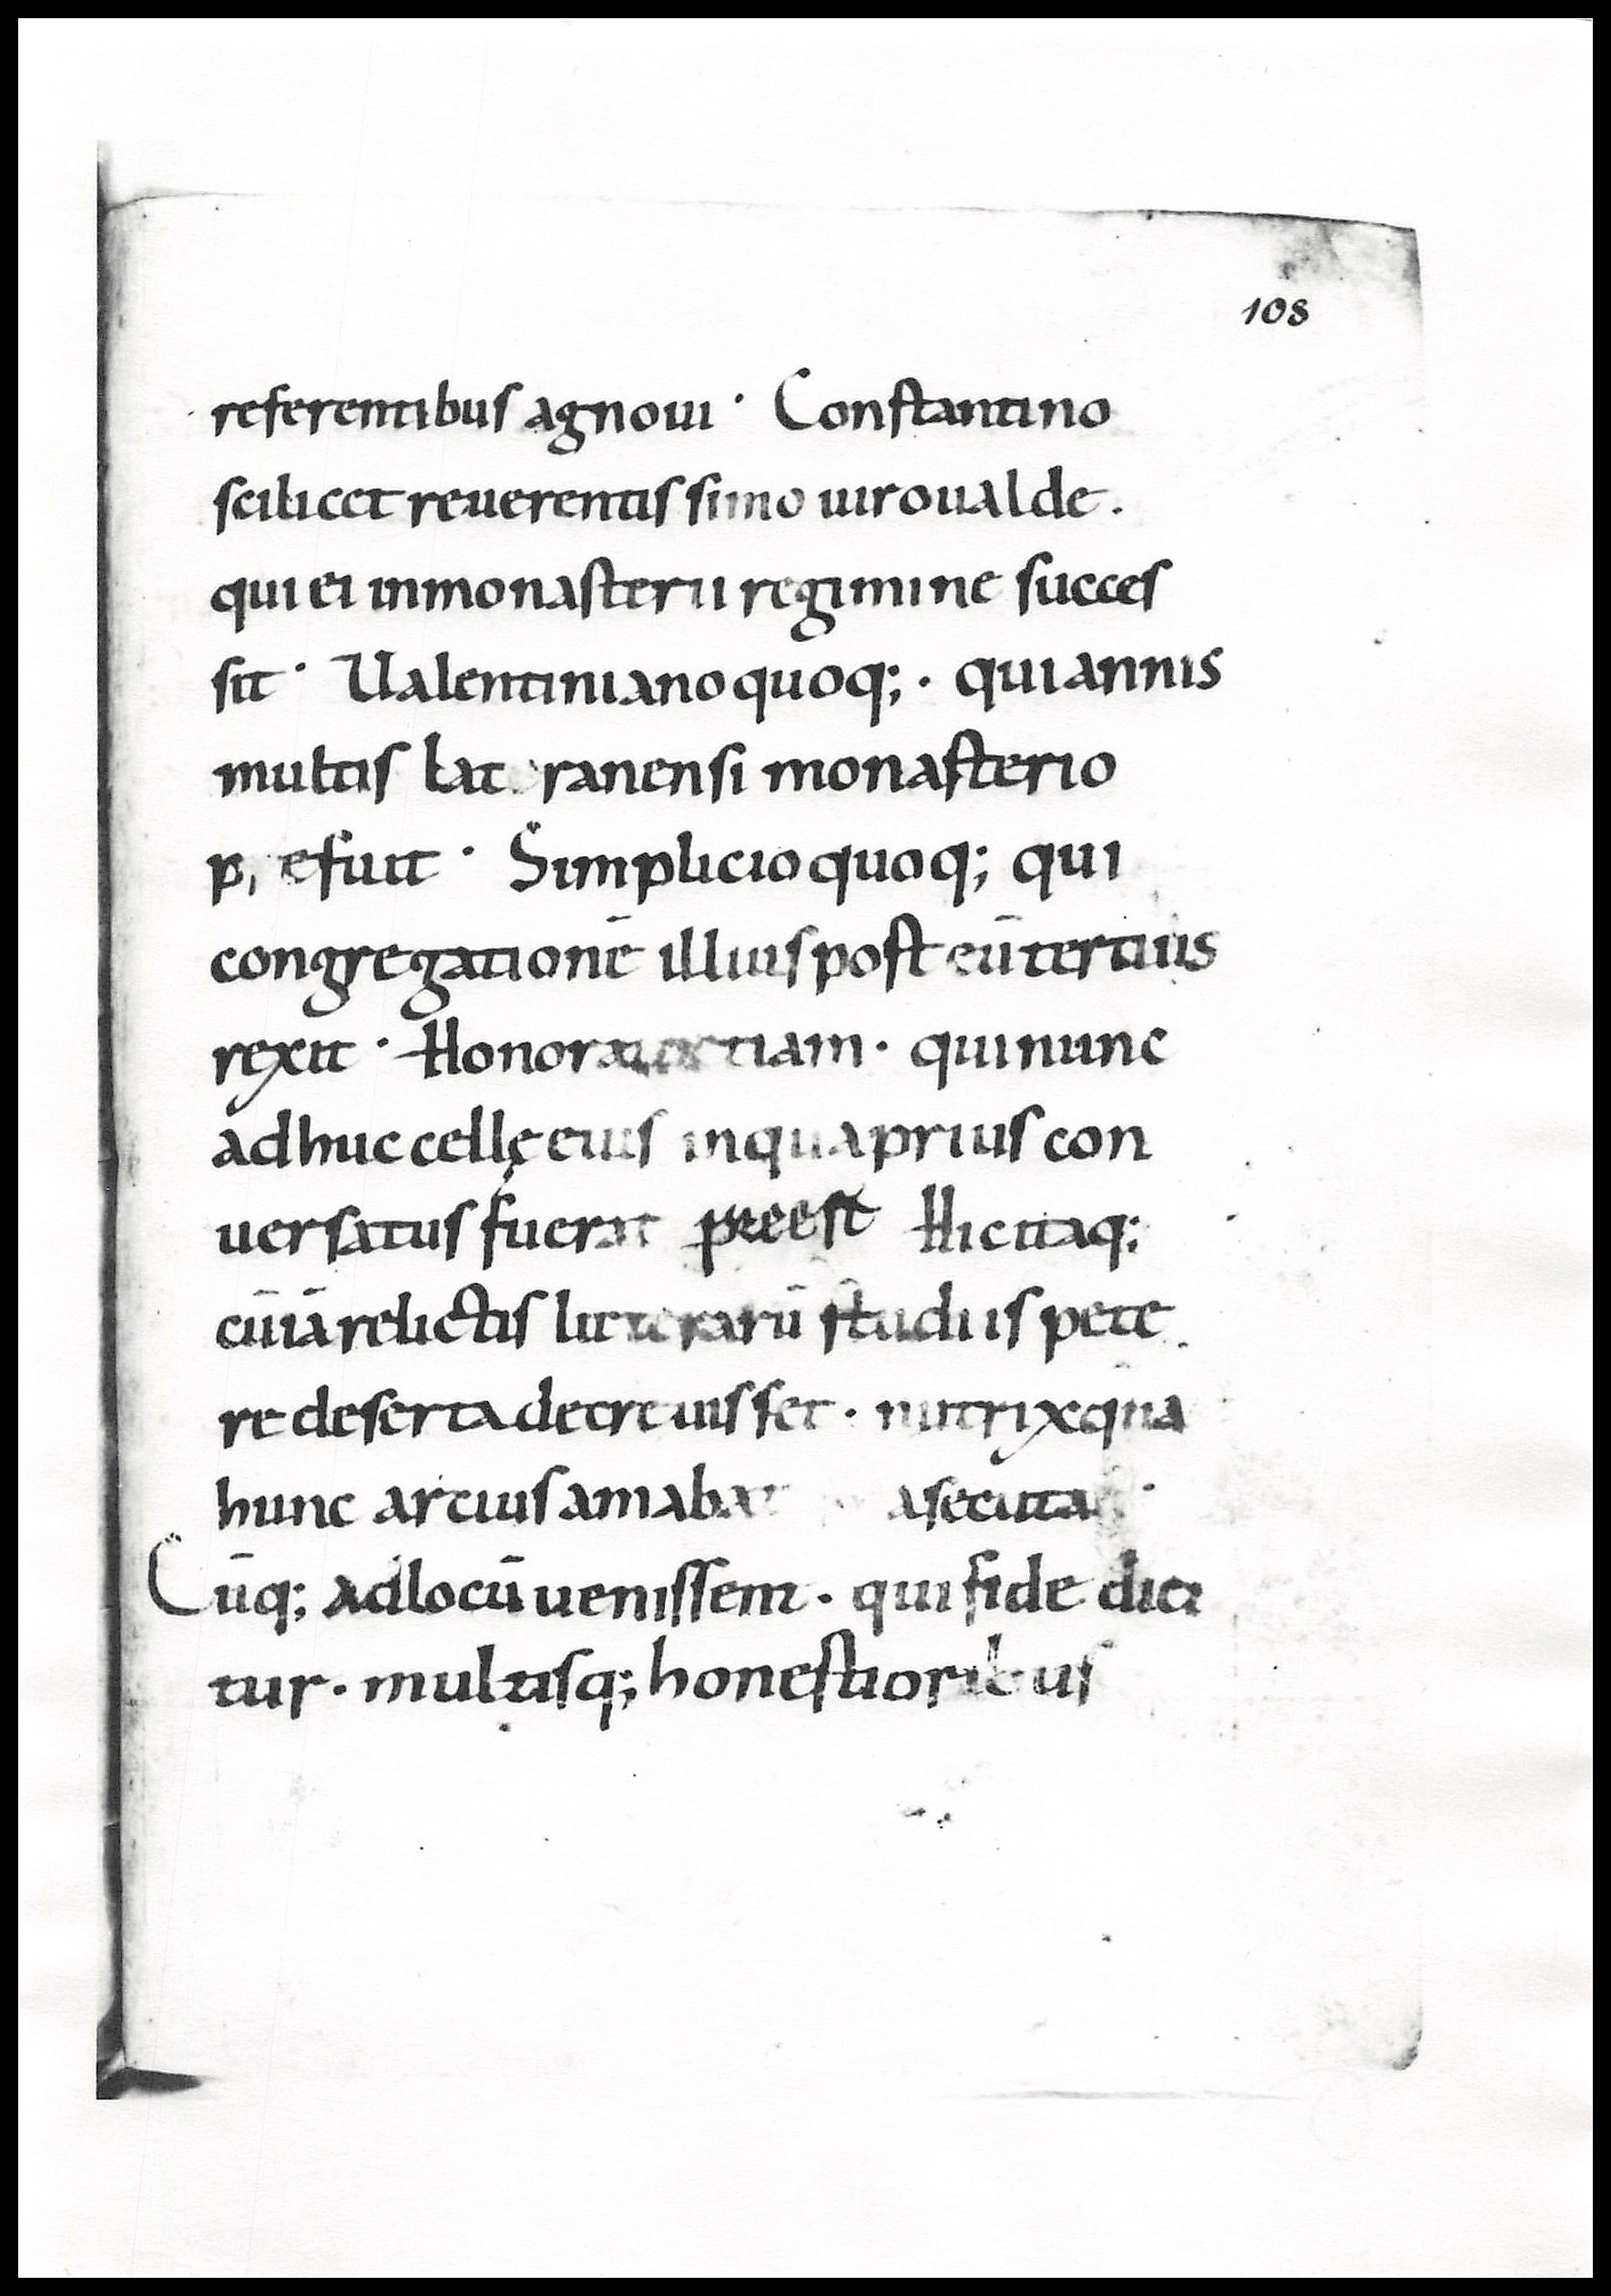 108
referentibus agnoui · Constantino
scilicet reuerentissimo uiro ualde .
qui ei in monasterii regimine succes
sit · Ualentiniano quoq; · qui annis
multis lat ranensi monasterio
p efuit · Simplicio quoq; qui
congregationē illius post eū tertius
rexit · Honorato etiam · qui nunc
adhuc cellę eius in qua prius con
uersatus fuerat preest Hic itaq;
cū iā relictis litterarū studiis pete
re deserta decreuisset · nutrix q̄ua
hunc artius amabat secuta ·
Cūq; ad locū uenissent · qui fide dici
tur · multisq; honestioribus